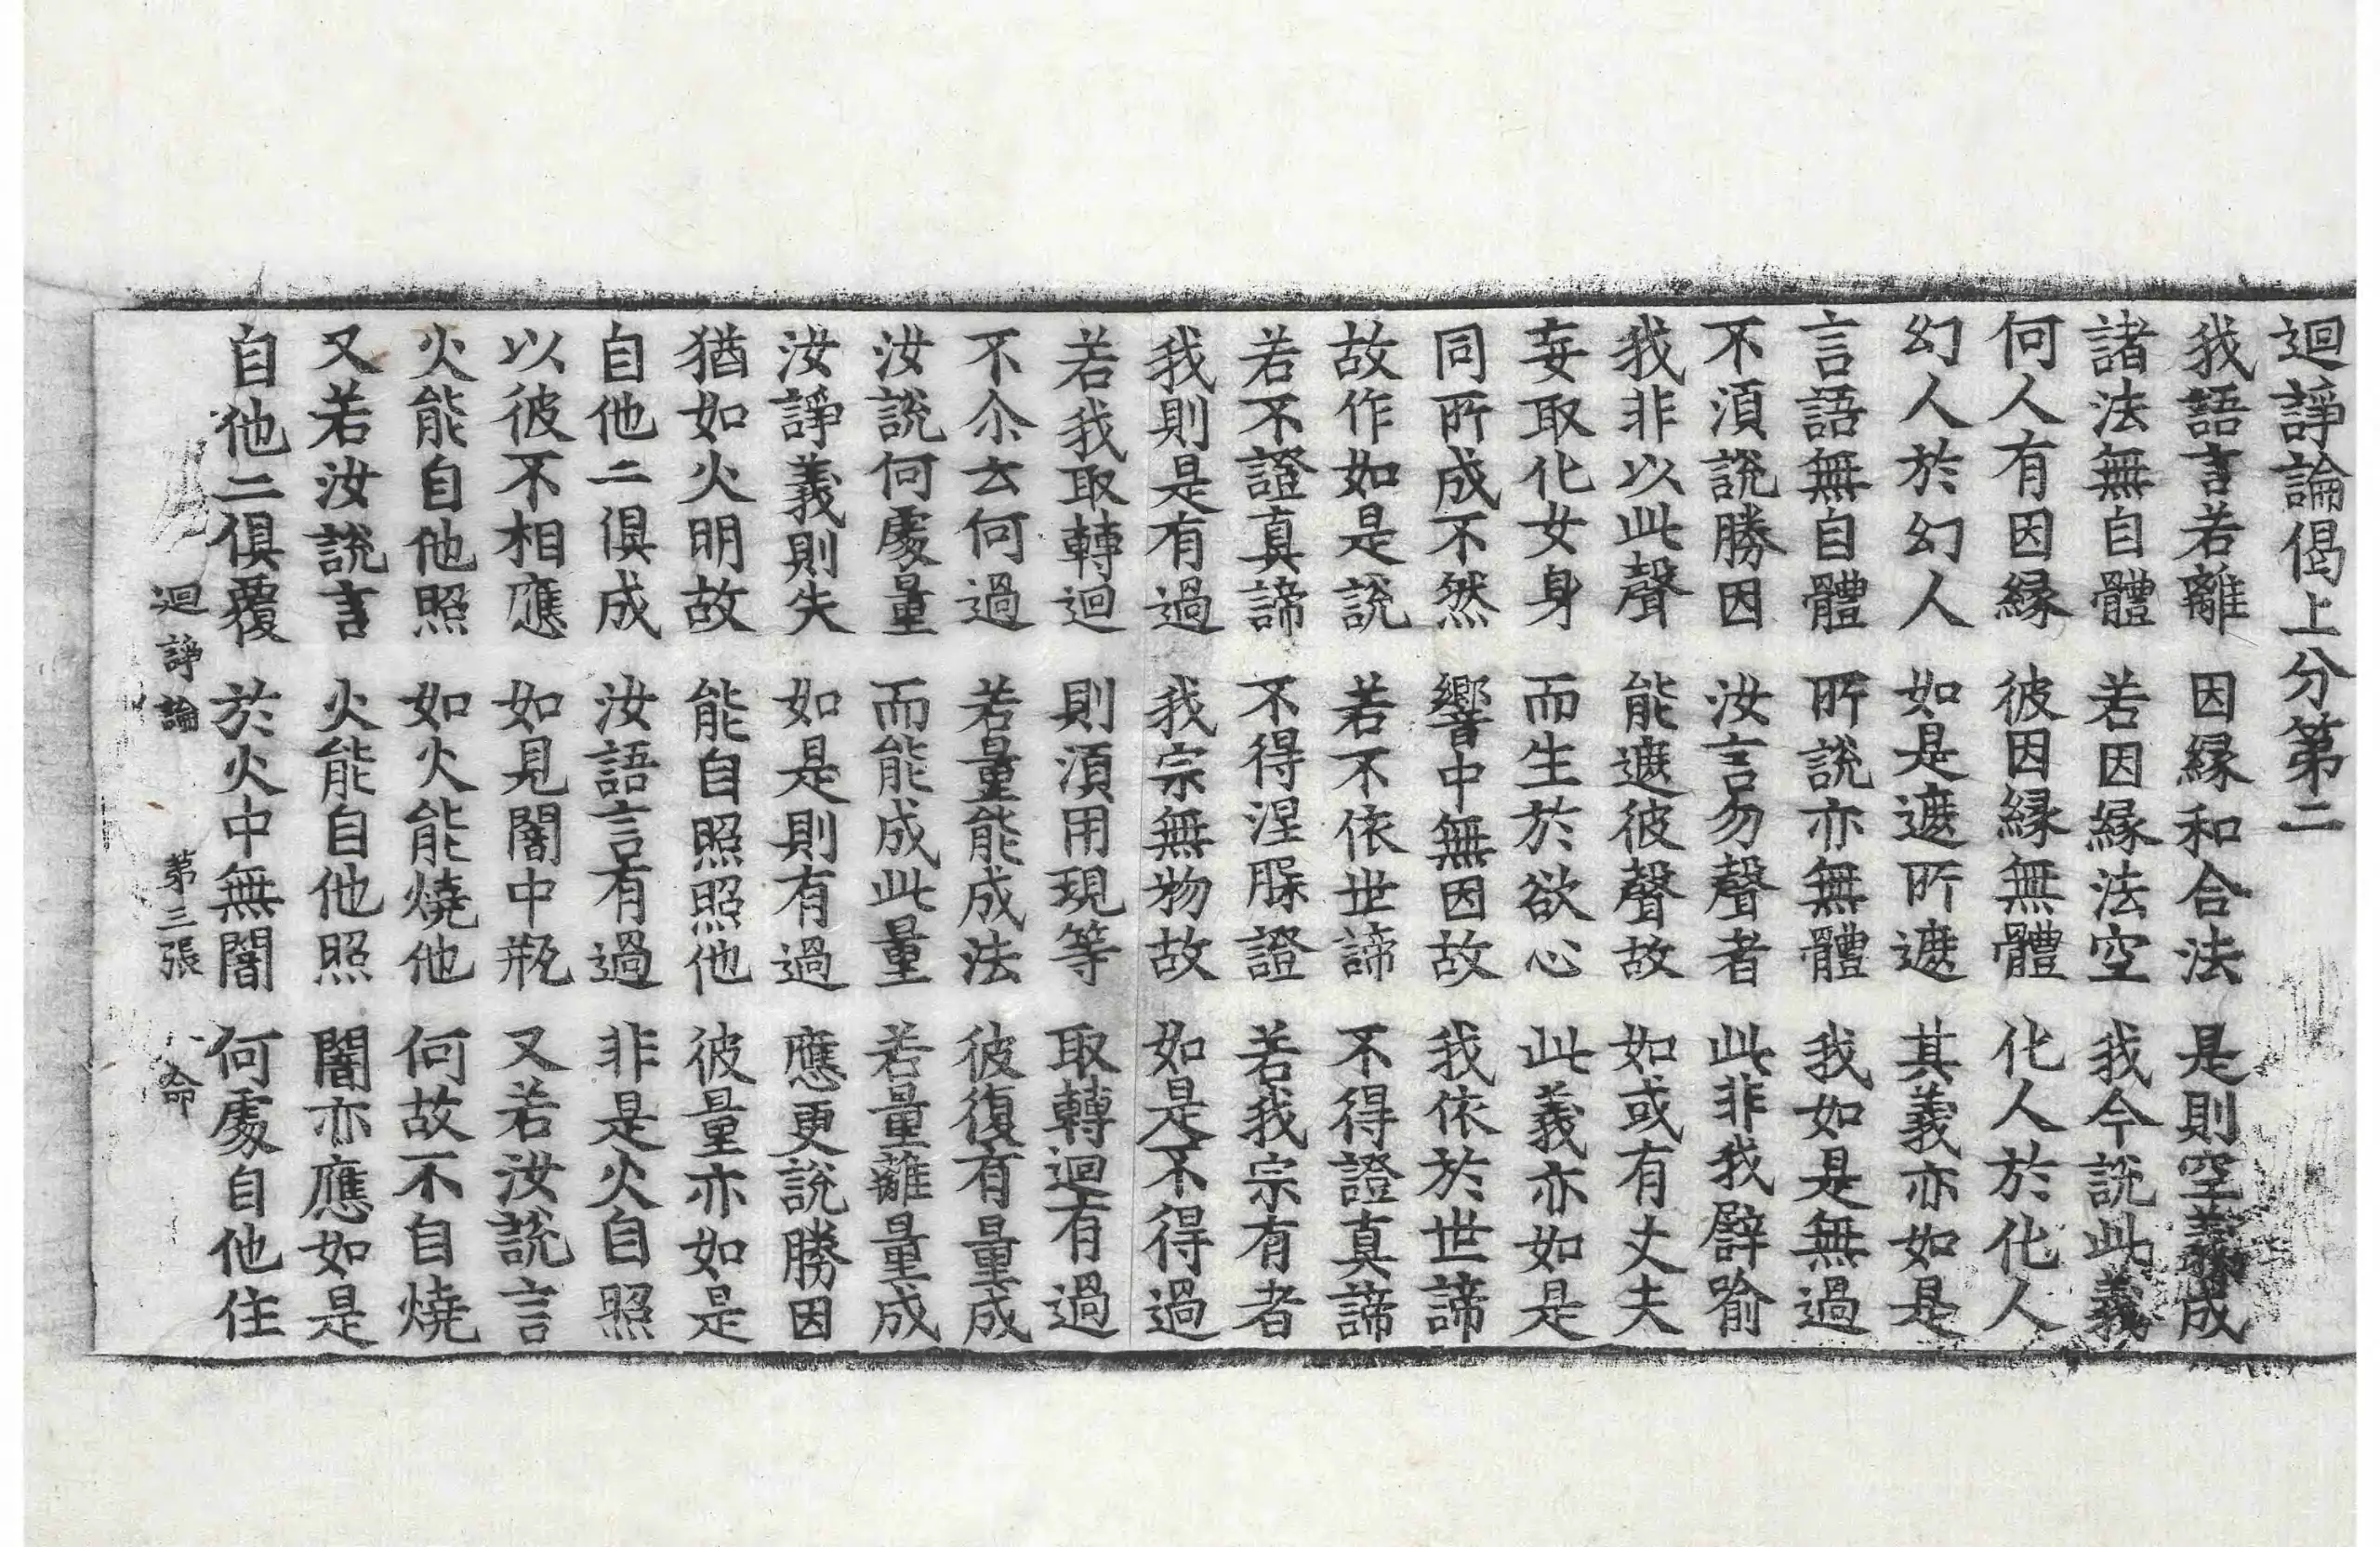 迴諍論偈上分第二
我語言若離　因緣和合法　是則空義成
諸法無自體　若因緣法空　我今說此義
何人有因緣　彼因緣無體　化人於化人
幻人於幻人　如是遮所遮　其義亦如是
言語無自體　所說亦無體　我如是無過
不須說勝因　汝言勿聲者　此非我譬喻
我非以此聲　能遮彼聲故　如或有丈夫
妄取化女身　而生於欲心　此義亦如是
同所成不然　響中無因故　我依於世諦
故作如是說　若不依世諦　不得證真諦
若不證真諦　不得涅槃證　若我宗有者
我則是有過　我宗無物故　如是不得過
若我取轉迴　則須用現等　取轉迴有過
不尒云何過　若量能成法　彼復有量成
汝說何處量　而能成此量　若量離量成
汝諍義則失　如是則有過　應更說勝因
猶如火明故　能自照照他　彼量亦如是
自他二俱成　汝語言有過　非是火自照
以彼不相應　如見闇中瓶　又若汝說言
火能自他照　如火能燒他　何故不自燒
又若汝說言　火能自他照　闇亦應如是
自他二俱覆　於火中無闇　何處自他住
迴諍論　第三張　命